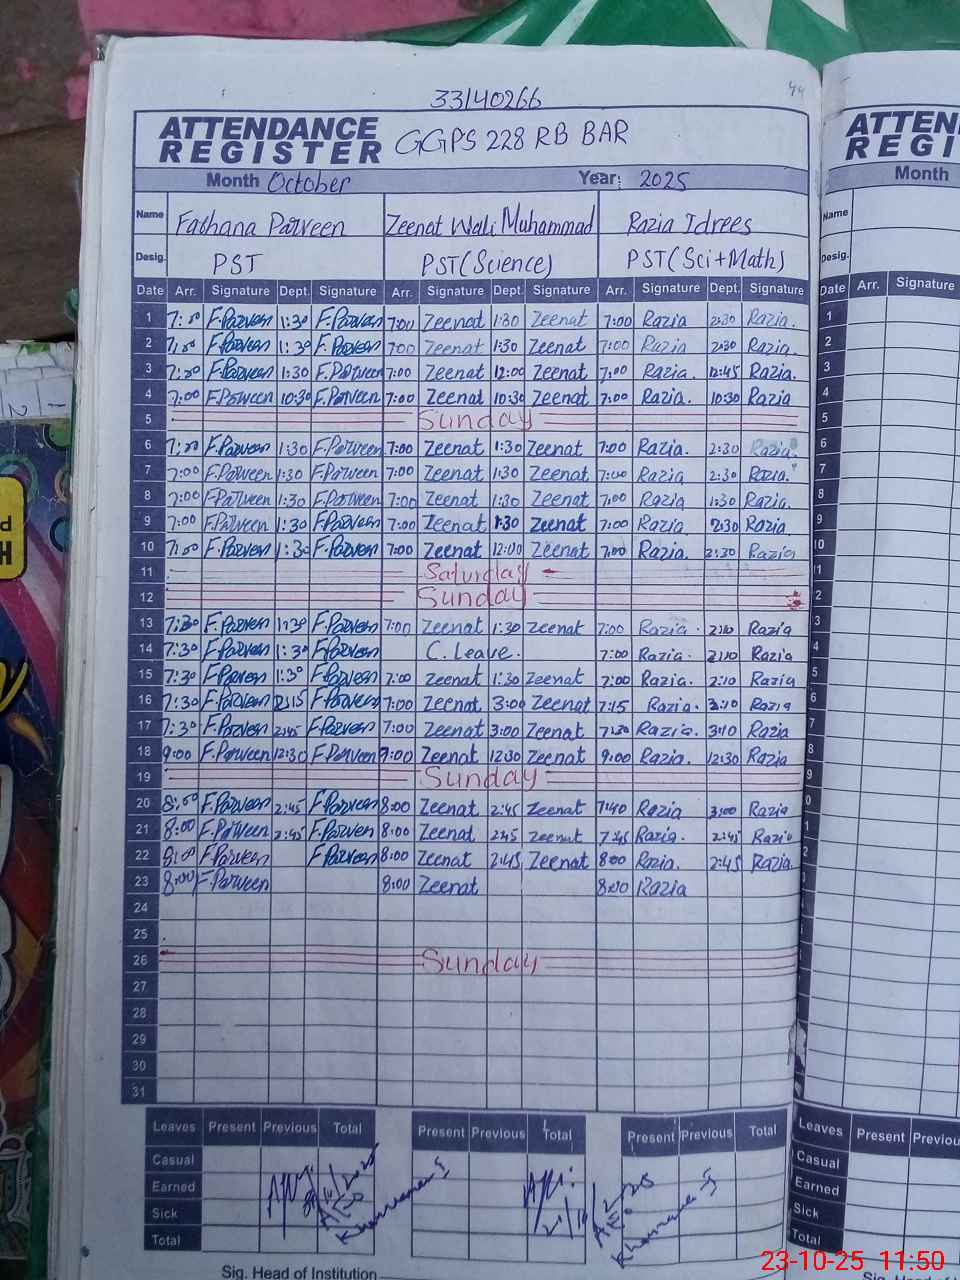 44
33140266
ATTENDANCE REGISTER GGPS 228 RB BAR
Month October Year: 2025
Name Farhana Parveen Zeenat Wali Muhammad Razia Idrees
Desig. PST PST(Science) PST(Sci+Math)
Date Arr. Signature Dept. Signature Arr. Signature Dept. Signature Arr. Signature Dept. Signature
1 F.Parveen 1:30 F.Parveen 7:00 Zeenat 1:30 Zeenat 7:00 Razia 2:30 Razia.
2 F.Parveen 1:30 F.Parveen 7:00 Zeenat 1:30 Zeenat 7:00 Razia 2:30 Razia.
3 F.Parveen 1:30 F.Parveen 7:00 Zeenat 12:00 Zeenat 7:00 Razia. 12:45 Razia.
4 7:00 F.Parveen 10:30 F.Parveen 7:00 Zeenat 10:30 Zeenat 7:00 Razia. 10:30 Razia
5 Sunday
6 F.Parveen 1:30 F.Parveen 7:00 Zeenat 1:30 Zeenat 7:00 Razia. 2:30 Razia.
7 7:00 F.Parveen 1:30 F.Parveen 7:00 Zeenat 1:30 Zeenat 7:00 Razia 2:30 Razia.
8 7:00 F.Parveen 1:30 F.Parveen 7:00 Zeenat 1:30 Zeenat 7:00 Razia 1:30 Razia.
9 7:00 F.Parveen 1:30 F.Parveen 7:00 Zeenat 1:30 Zeenat 7:00 Razia 2:30 Razia
10 F.Parveen 1:30 F.Parveen 7:00 Zeenat 12:00 Zeenat 7:00 Razia. Razia
11 Saturday
12 Sunday
13 7:30 F.Parveen 1:30 F.Parveen 7:00 Zeenat 1:30 Zeenat 7:00 Razia. 2:10 Razia
14 7:30 F.Parveen 1:30 F.Parveen C. Leave. 7:00 Razia. 2:10 Razia
15 7:30 F.Parveen 1:30 F.Parveen 7:00 Zeenat 1:30 Zeenat 7:00 Razia. 2:10 Razia
16 7:30 F.Parveen 2:15 F.Parveen 7:00 Zeenat 3:00 Zeenat 7:15 Razia. 3:10 Razia
17 7:30 F.Parveen 2:45 F.Parveen 7:00 Zeenat 3:00 Zeenat 7:20 Razia. 3:10 Razia
18 9:00 F.Parveen 12:30 F.Parveen 9:00 Zeenat 12:30 Zeenat 9:00 Razia. 12:30 Razia
19 Sunday
20 8:00 F.Parveen 2:45 F.Parveen 8:00 Zeenat 2:45 Zeenat 7:40 Razia 3:00 Razia
21 8:00 F.Parveen 2:45 F.Parveen 8:00 Zeenat 2:45 Zeenat 7:45 Razia. 2:45 Razia
22 8:00 F.Parveen F.Parveen 8:00 Zeenat 2:45 Zeenat 8:00 Razia. 2:45 Razia.
23 8:00 F.Parveen 8:00 Zeenat 8:00 Razia
24
25
26 Sunday
27
28
29
30
31
Leaves Present Previous Total Present Previous Total Present Previous Total
Casual
Earned
Sick
Total
Sig. Head of Institution
ATTEN
REGI
Month
Name
Desig.
Date Arr. Signature
1
2
3
4
5
6
7
8
9
10
11
2
3
4
5
6
7
8
9
0
1
2
3
Leaves Present Previou
Casual
Earned
Sick
Total
23-10-25 11:50